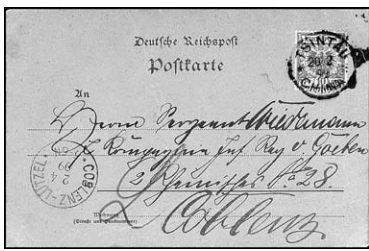 Deutsche Reichspost
Postkarte
TSINTAU
20 2
99
CHINA
An
Herrn Sergeant Wiedemann
Kompagnie Inf Reg v. Goeben
2 Rheinisches No 28.
COBLENZ-LÜTZEL.
2 4
99
Wohnung
(Straße und Hausnummer)
Coblenz